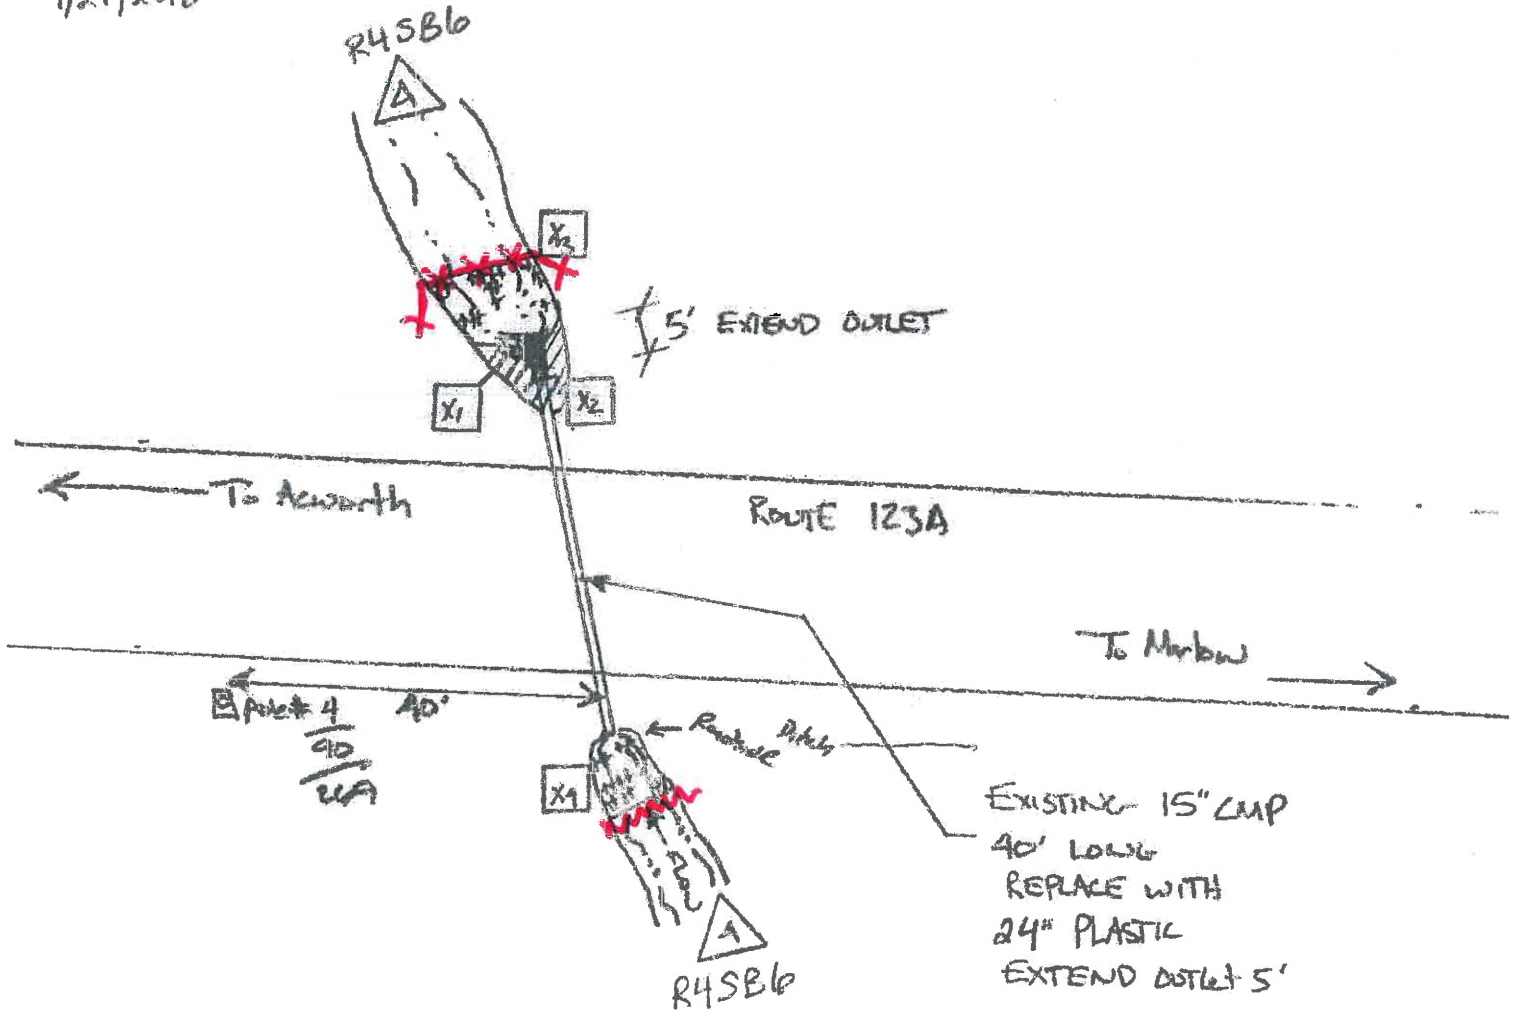 R4SB6
A
X3
5' EXTEND OUTLET
X1
X2
To Acworth
ROUTE 123A
To Marlow
Pole# 4
40'
90
Roadside Ditch
X4
EXISTING 15" CMP
40' LONG
REPLACE WITH
24" PLASTIC
EXTEND OUTLET 5'
A
R4SB6